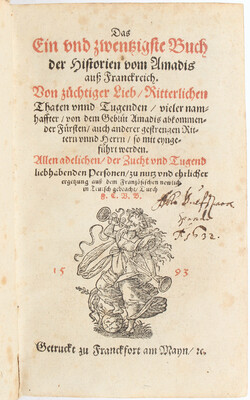 Das
Ein vnd zwentzigste Buch
der Historien vom Amadis
auß Franckreich.
Von züchtiger Lieb/ Ritterlichen
Thaten vnnd Tugenden/ vieler nam-
haffter/ von dem Geblüt Amadis abkommen-
der Fürsten/ auch anderer gestrengen Rit-
tern vnnd Herrn/ so mit eynge-
führt werden.
Allen adelichen/ der Zucht vnd Tugend
liebhabenden Personen/ zu nutz vnd ehrlicher
ergetzung auß dem Frantzösischen newlich
in Teutsch gebracht/ Durch
1593
Getruckt zu Franckfort am Mayn/ ꝛc.